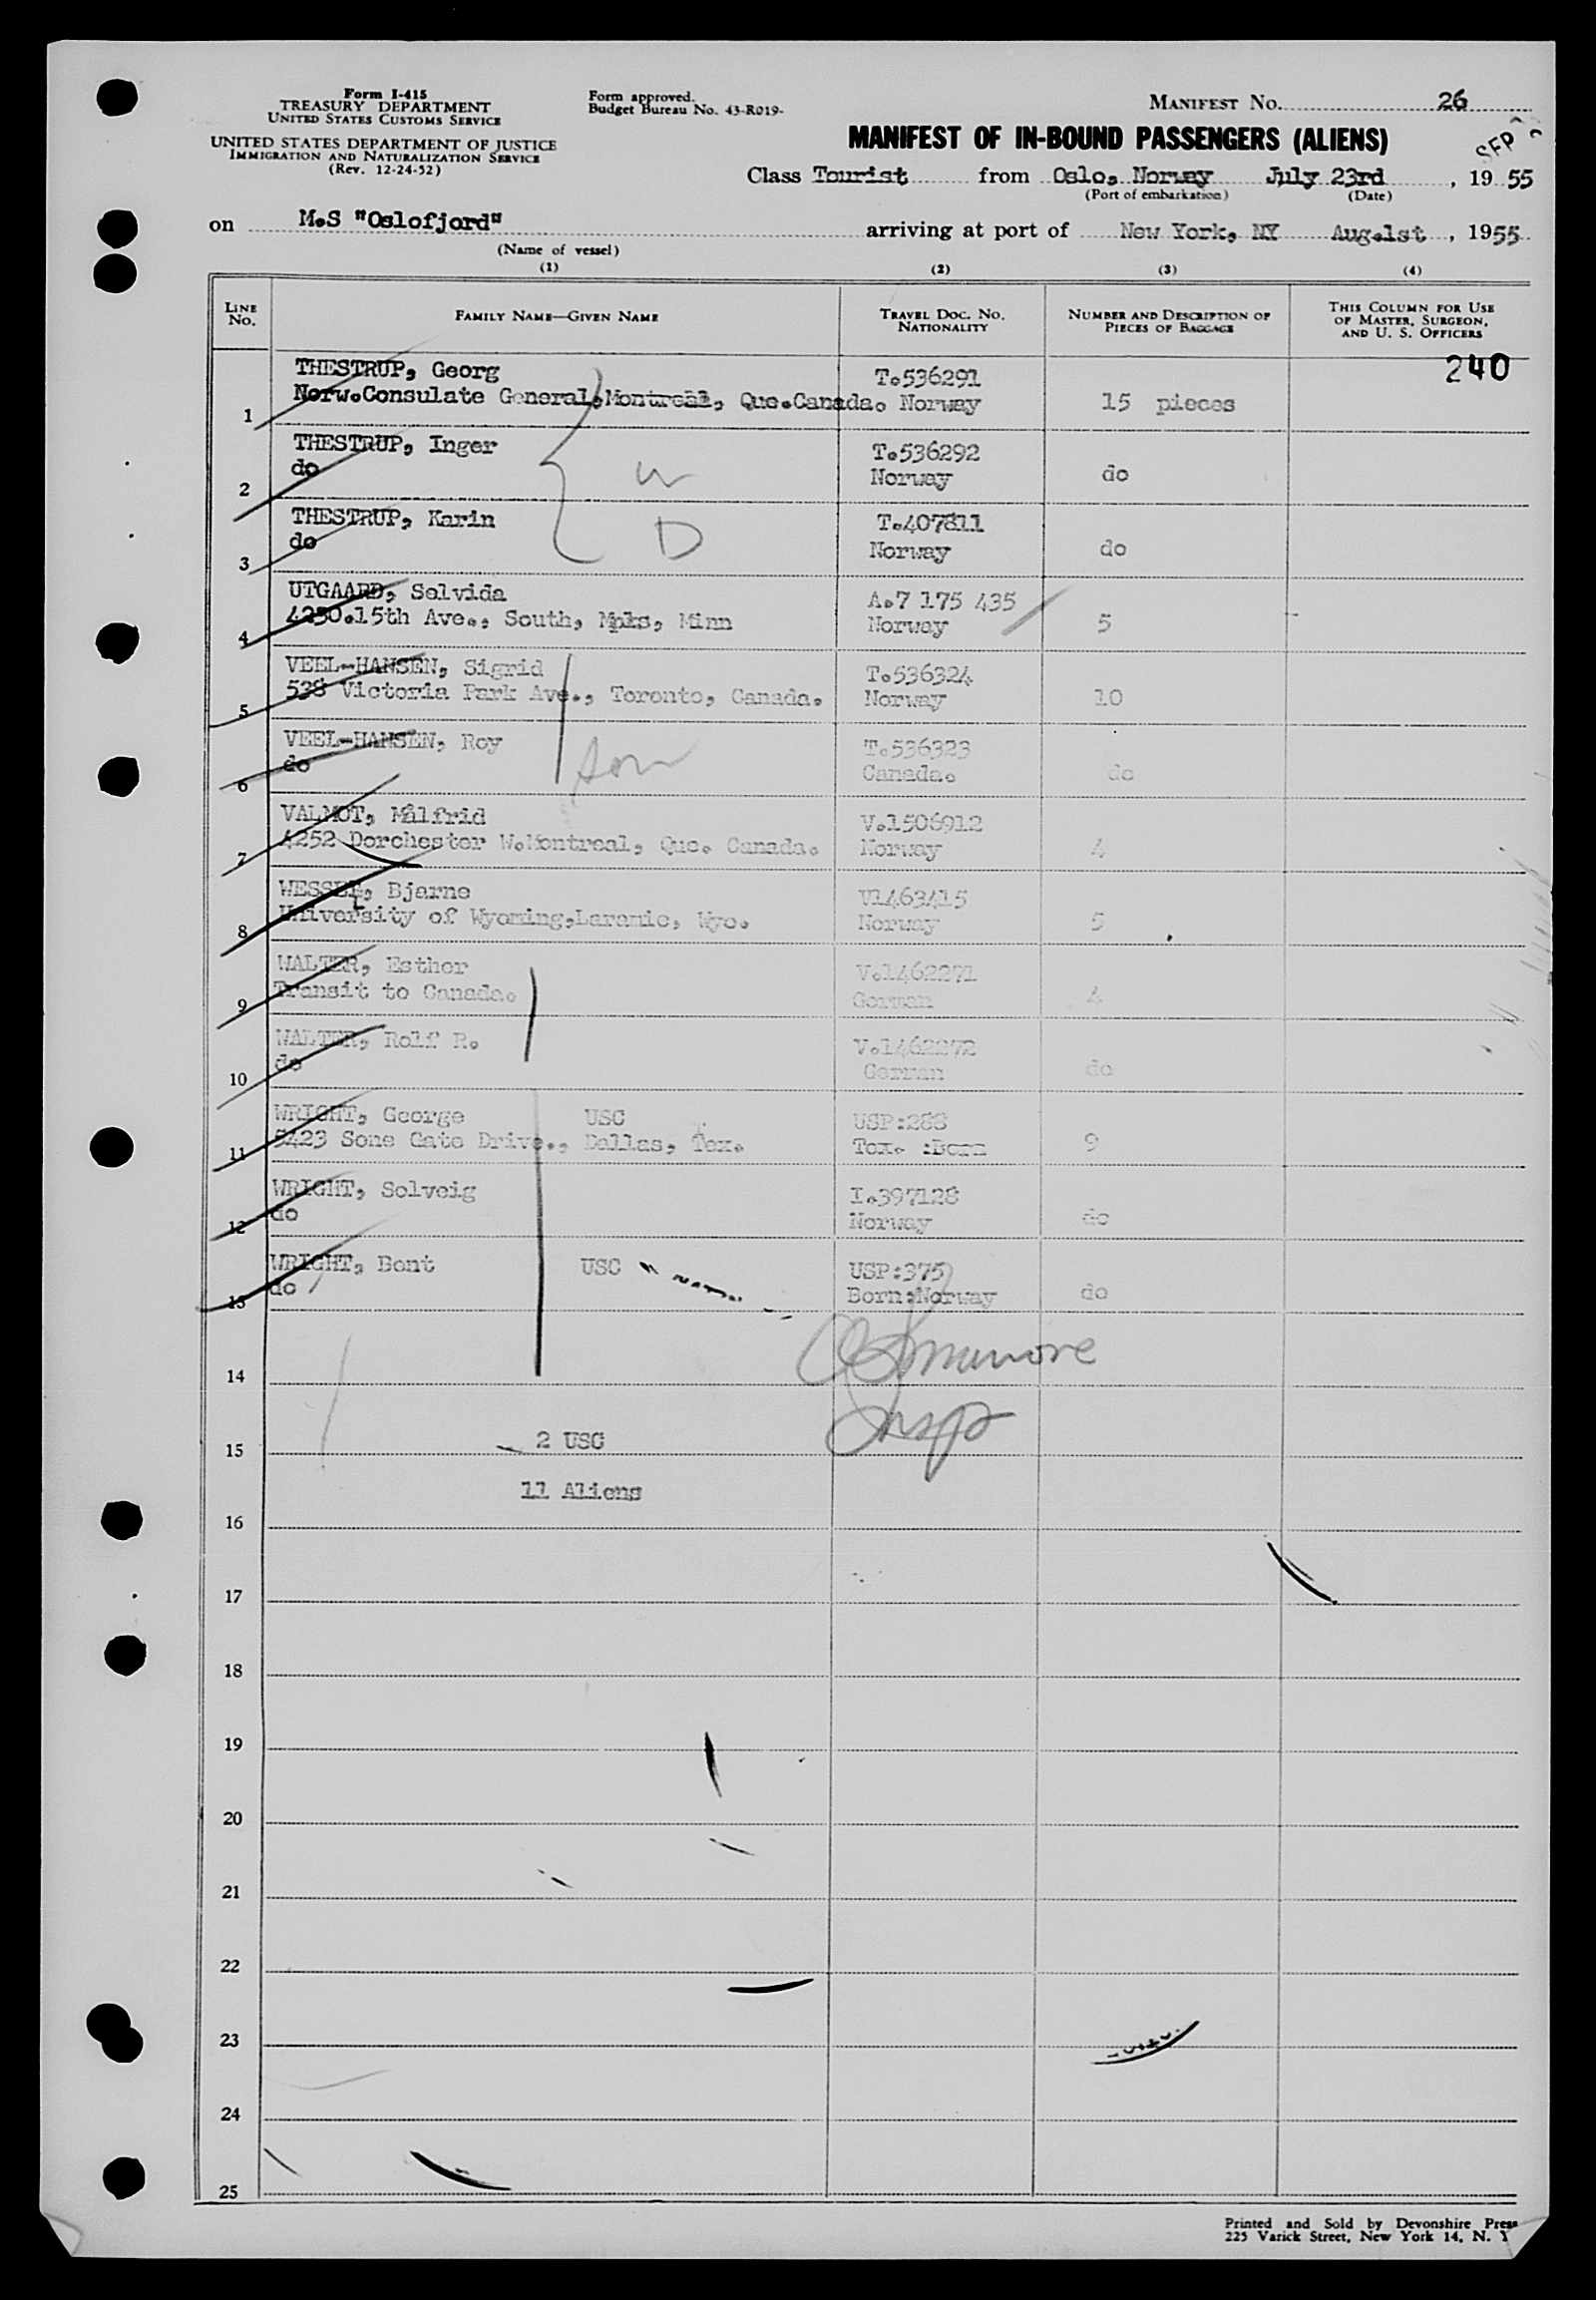 Form I-415
TREASURY DEPARTMENT
UNITED STATES CUSTOMS SERVICE
UNITED STATES DEPARTMENT OF JUSTICE
IMMIGRATION AND NATURALIZATION SERVICE
(Rev. 12-24-52)
Form approved.
Budget Bureau No. 43-R019-
MANIFEST No. 26
MANIFEST OF IN-BOUND PASSENGERS (ALIENS)
SEP
Class Tourist from Oslo, Norway July 23rd, 19 55
(Port of embarkation) (Date)
on M.S "Oslofjord" arriving at port of New York, NY Aug.1st, 1955
(Name of vessel)
(1) (2) (3) (4)
LINE No. FAMILY NAME—GIVEN NAME TRAVEL DOC. No. NATIONALITY NUMBER AND DESCRIPTION OF PIECES OF BAGGAGE THIS COLUMN FOR USE OF MASTER, SURGEON, AND U. S. OFFICERS
240
THESTRUP, Georg T.536291
1 Norw.Consulate General,Montreal, Que.Canada. Norway 15 pieces
THESTRUP, Inger T.536292
2 do W Norway do
THESTRUP, Karin T.407811
3 do D Norway do
UTGAARD, Solvida A.7 175 435
4 4250.15th Ave., South, Mpls, Minn Norway 5
VEEL-HANSEN, Sigrid T.536324
5 538 Victoria Park Ave., Toronto, Canada. Norway 10
VEEL-HANSEN, Roy T.536323
6 do son Canada. do
VALMOT, Målfrid V.1506912
7 4252 Dorchester W.Montreal, Que. Canada. Norway 4
WESSEL, Bjarne V1463415
8 University of Wyoming,Laramie, Wyo. Norway 5
WALTER, Esther V.1462271
9 Transit to Canada. German 4
WALTER, Rolf R. V.1462272
10 do German do
WRIGHT, George USC USP:288
11 5423 Sone Gate Drive., Dallas, Tex. Tex. :Born 9
WRIGHT, Solveig I.397128
12 do Norway do
WRIGHT, Bent USC USP:375
13 do Born:Norway do
14
Insp
15 2 USC
11 Aliens
16
17
18
19
20
21
22
23
24
25
Printed and Sold by Devonshire Press
225 Varick Street, New York 14, N. Y